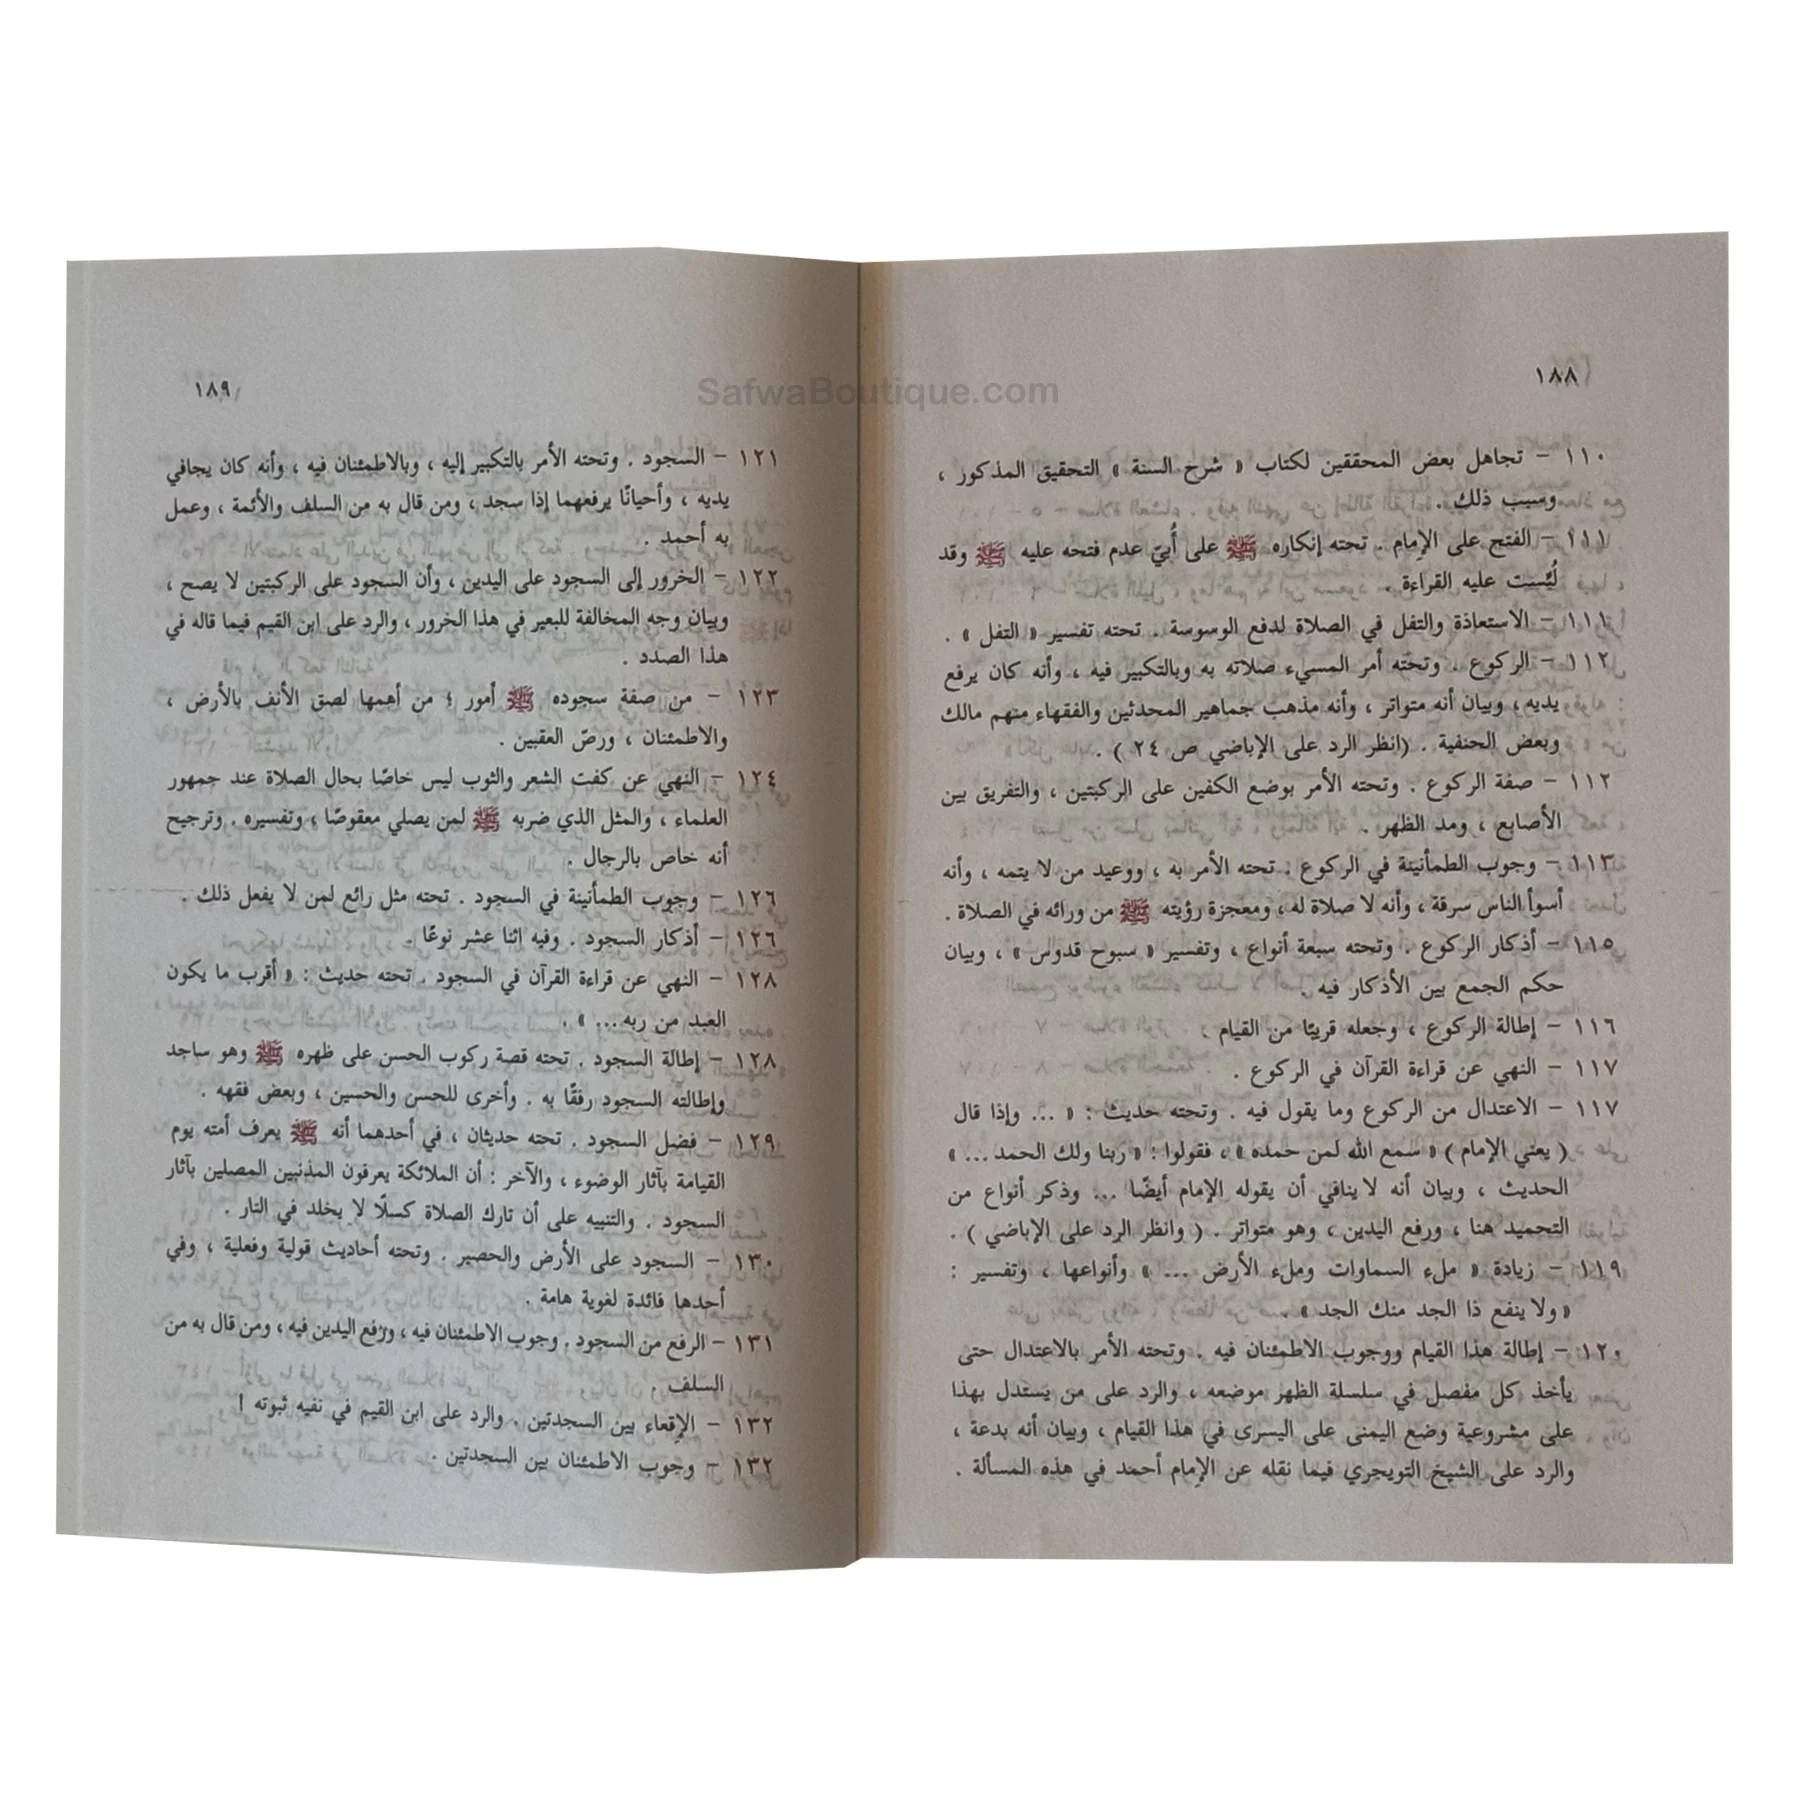 SafwaBoutique.com
١٨٨
١١٠ – تجاهل بعض المحققين لكتاب « شرح السنة » التحقيق المذكور ،
وسبب ذلك .
١١١ – الفتح على الإمام . تحته إنكاره ﷺ على أُبيّ عدم فتحه عليه ﷺ وقد
لُبِّست عليه القراءة .
١١١ – الاستعاذة والتفل في الصلاة لدفع الوسوسة . تحته تفسير « التفل » .
١١٢ – الركوع . وتحته أمر المسيء صلاته به وبالتكبير فيه ، وأنه كان يرفع
يديه ، وبيان أنه متواتر ، وأنه مذهب جماهير المحدثين والفقهاء منهم مالك
وبعض الحنفية . (انظر الرد على الإباضي ص ٢٤ ) .
١١٢ – صفة الركوع . وتحته الأمر بوضع الكفين على الركبتين ، والتفريق بين
الأصابع ، ومد الظهر .
١١٣ – وجوب الطمأنينة في الركوع : تحته الأمر به ، ووعيد من لا يتمه ، وأنه
أسوأ الناس سرقة ، وأنه لا صلاة له ، ومعجزة رؤيته ﷺ من ورائه في الصلاة .
١١٥ – أذكار الركوع . وتحته سبعة أنواع ، وتفسير « سبوح قدوس » ، وبيان
حكم الجمع بين الأذكار فيه .
١١٦ – إطالة الركوع ، وجعله قريبًا من القيام .
١١٧ – النهي عن قراءة القرآن في الركوع .
١١٧ – الاعتدال من الركوع وما يقول فيه . وتحته حديث : « ... وإذا قال
( يعني الإمام ) « سمع الله لمن حمده » ، فقولوا : « ربنا ولك الحمد ... »
الحديث ، وبيان أنه لا ينافي أن يقوله الإمام أيضًا ... وذكر أنواع من
التحميد هنا ، ورفع اليدين ، وهو متواتر . ( وانظر الرد على الإباضي ) .
١١٩ – زيادة « ملء السماوات وملء الأرض ... » وأنواعها ، وتفسير :
« ولا ينفع ذا الجد منك الجد » .
١٢٠ – إطالة هذا القيام ووجوب الاطمئنان فيه . وتحته الأمر بالاعتدال حتى
يأخذ كل مفصل في سلسلة الظهر موضعه ، والرد على من يستدل بهذا
على مشروعية وضع اليمنى على اليسرى في هذا القيام ، وبيان أنه بدعة ،
والرد على الشيخ التويجري فيما نقله عن الإمام أحمد في هذه المسألة .
١٨٩
١٢١ – السجود . وتحته الأمر بالتكبير إليه ، وبالاطمئنان فيه ، وأنه كان يجافي
يديه ، وأحيانًا يرفعهما إذا سجد ، ومن قال به من السلف والأئمة ، وعمل
به أحمد .
١٢٢ – الخرور إلى السجود على اليدين ، وأن السجود على الركبتين لا يصح ،
وبيان وجه المخالفة للبعير في هذا الخرور ، والرد على ابن القيم فيما قاله في
هذا الصدد .
١٢٣ – من صفة سجوده ﷺ أمور ؛ من أهمها لصق الأنف بالأرض ،
والاطمئنان ، ورصّ العقبين .
١٢٤ – النهي عن كفت الشعر والثوب ليس خاصًا بحال الصلاة عند جمهور
العلماء ، والمثل الذي ضربه ﷺ لمن يصلي معقوصًا ، وتفسيره . وترجيح
أنه خاص بالرجال .
١٢٦ – وجوب الطمأنينة في السجود . تحته مثل رائع لمن لا يفعل ذلك .
١٢٦ – أذكار السجود . وفيه اثنا عشر نوعًا .
١٢٨ – النهي عن قراءة القرآن في السجود . تحته حديث : « أقرب ما يكون
العبد من ربه ... » .
١٢٨ – إطالة السجود . تحته قصة ركوب الحسن على ظهره ﷺ وهو ساجد
وإطالته السجود رفقًا به . وأخرى للحسن والحسين ، وبعض فقهه .
١٢٩ – فضل السجود . تحته حديثان ، في أحدهما أنه ﷺ يعرف أمته يوم
القيامة بآثار الوضوء ، والآخر : أن الملائكة يعرفون المذنبين المصلين بآثار
السجود . والتنبيه على أن تارك الصلاة كسلًا لا يخلد في النار .
١٣٠ – السجود على الأرض والحصير . وتحته أحاديث قولية وفعلية ، وفي
أحدها فائدة لغوية هامة .
١٣١ – الرفع من السجود . وجوب الاطمئنان فيه ، ورفع اليدين فيه ، ومن قال به من
السلف .
١٣٢ – الإقعاء بين السجدتين . والرد على ابن القيم في نفيه ثبوته !
١٣٢ – وجوب الاطمئنان بين السجدتين .